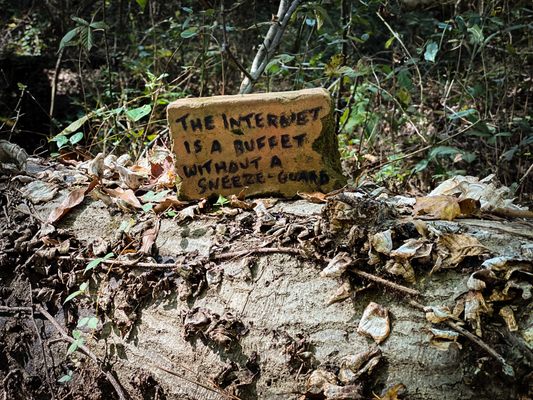 THE INTERNET
IS A BUFFET
WITHOUT A
SNEEZE-GUARD